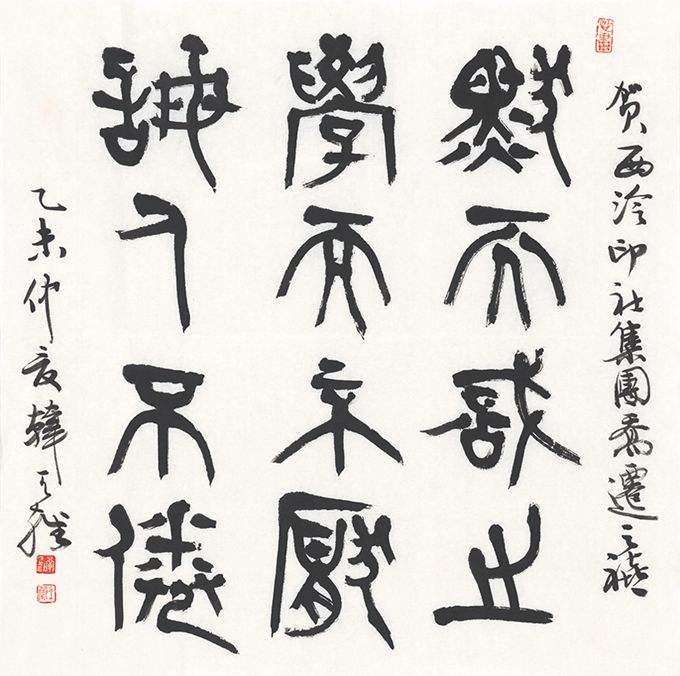 贺西泠印社集團喬遷之禧
默而識之
學而不厭
誨人不倦
乙未仲夏韓天雍